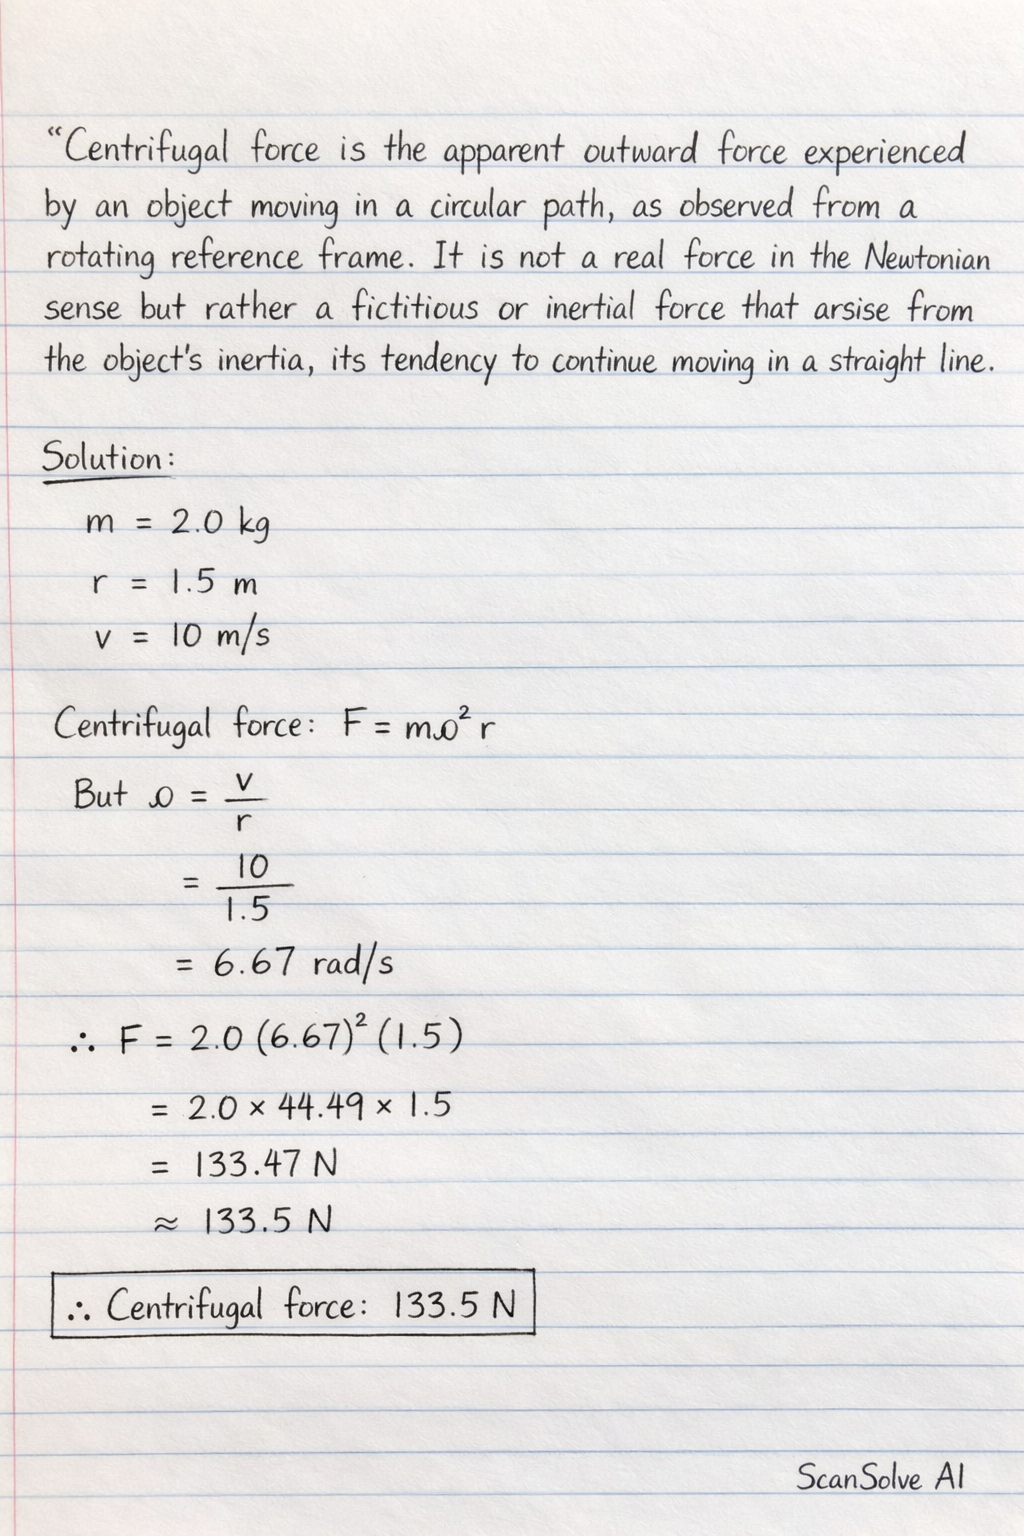 “Centrifugal force is the apparent outward force experienced
by an object moving in a circular path, as observed from a
rotating reference frame. It is not a real force in the Newtonian
sense but rather a fictitious or inertial force that arsise from
the object's inertia, its tendency to continue moving in a straight line.
Solution:
m = 2.0 kg
r = 1.5 m
v = 10 m/s
Centrifugal force: F = mω² r
But ω = v/r
= 10/1.5
= 6.67 rad/s
∴ F = 2.0 (6.67)² (1.5)
= 2.0 × 44.49 × 1.5
= 133.47 N
≈ 133.5 N
∴ Centrifugal force: 133.5 N
ScanSolve AI